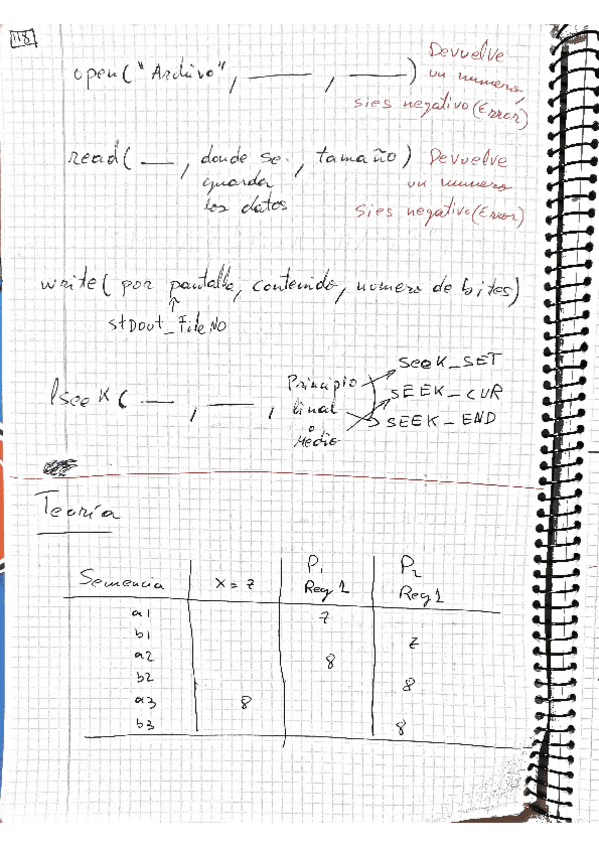 118
open("Archivo", ____ , ____ ) Devuelve
un numero,
si es negativo (Error)
read( __ , donde se , tamaño) Devuelve
guarda un numero
los datos si es negativo (Error)
write( por pantalla, contenido, numero de bites)
↑
stDout_FileNO
lseeK ( __ , ___ , Principio SeeK_SET
final SEEK_CUR
o SEEK_END
Medio
Teoría
P1 P2
Semencia X = 7 Reg 1 Reg 1
a1 7
b1 7
a2 8
b2 8
a3 8
b3 8